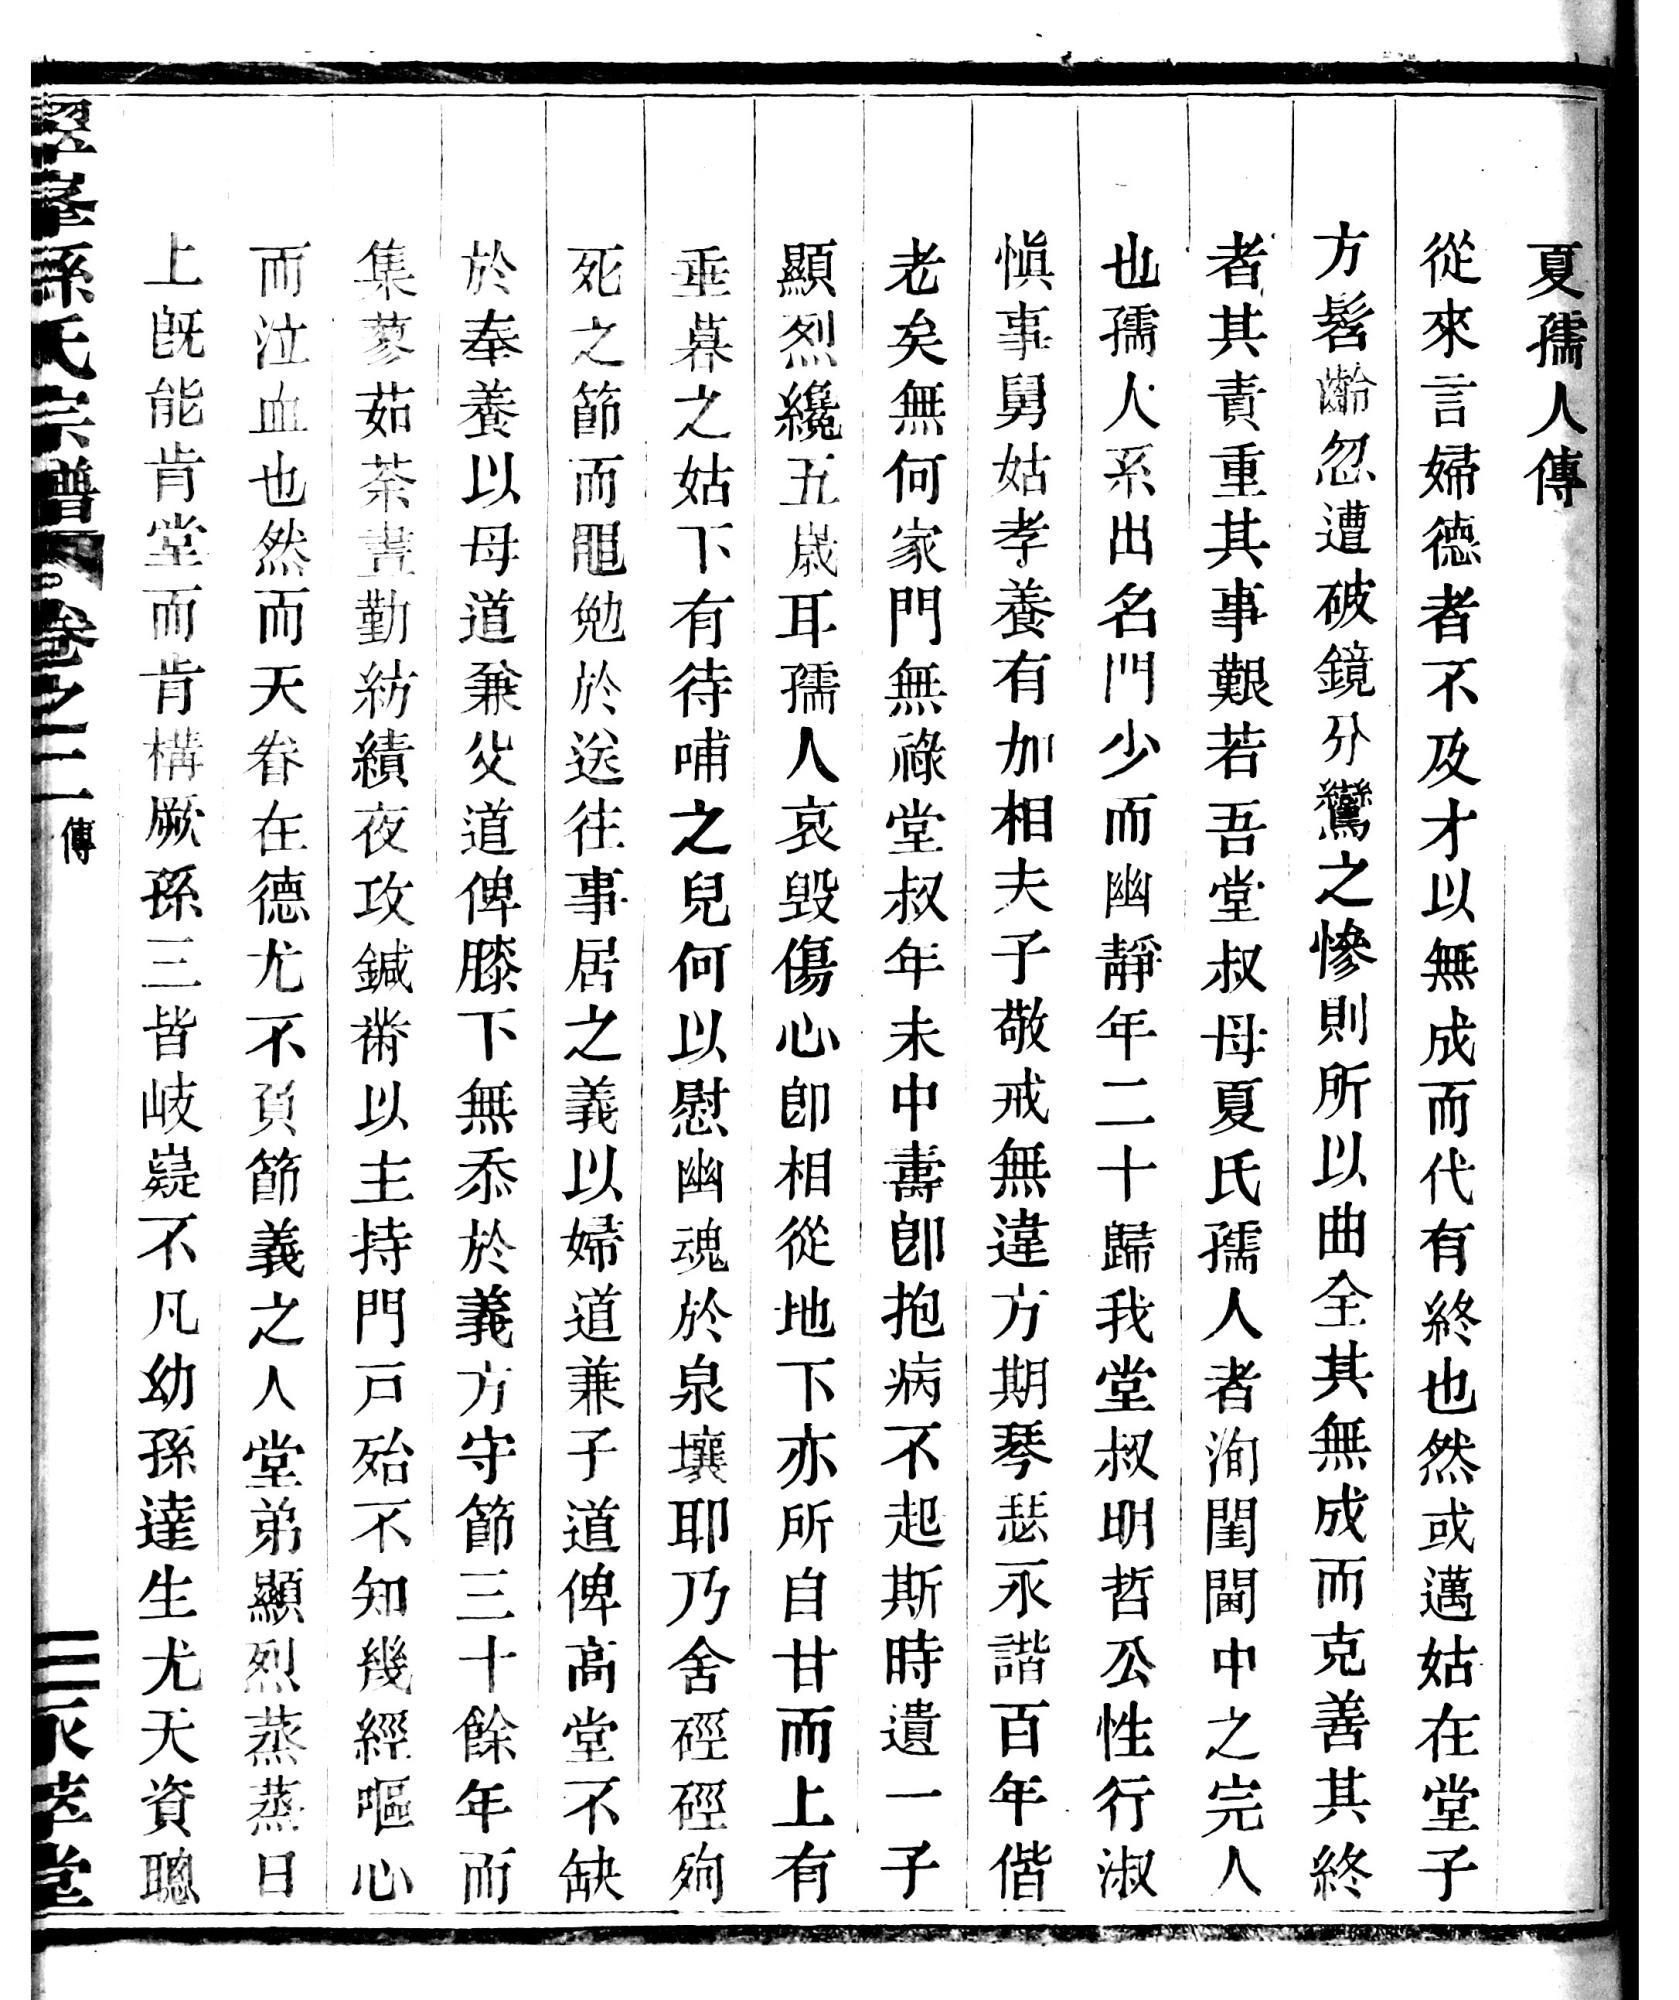 夏孺人傳
從來言婦德者不及才以無成而代有終也然或邁姑在堂子
方髫齡忽遭破鏡分鸞之慘則所以曲全其無成而克善其終
者其責重其事艱若吾堂叔母夏氏孺人者洵閨閫中之完人
也孺人系出名門少而幽靜年二十歸我堂叔明哲公性行淑
愼事舅姑孝養有加相夫子敬戒無違方期琴瑟永諧百年偕
老矣無何家門無祿堂叔年未中壽卽抱病不起斯時遺一子
顯烈纔五歲耳孺人哀毀傷心卽相從地下亦所自甘而上有
垂暮之姑下有待哺之兒何以慰幽魂於泉壤耶乃舍硜硜殉
死之節而黽勉於送往事居之義以婦道兼子道俾高堂不缺
於奉養以母道兼父道俾膝下無忝於義方守節三十餘年而
集蓼茹荼晝勤紡績夜攻鍼黹以主持門戸殆不知幾經嘔心
而泣血也然而天眷在德尤不負節義之人堂弟顯烈蒸蒸日
上旣能肯堂而肯構厥孫三皆岐嶷不凡幼孫達生尤天資聰
孫氏宗譜 卷之二 傳
三 永萃堂